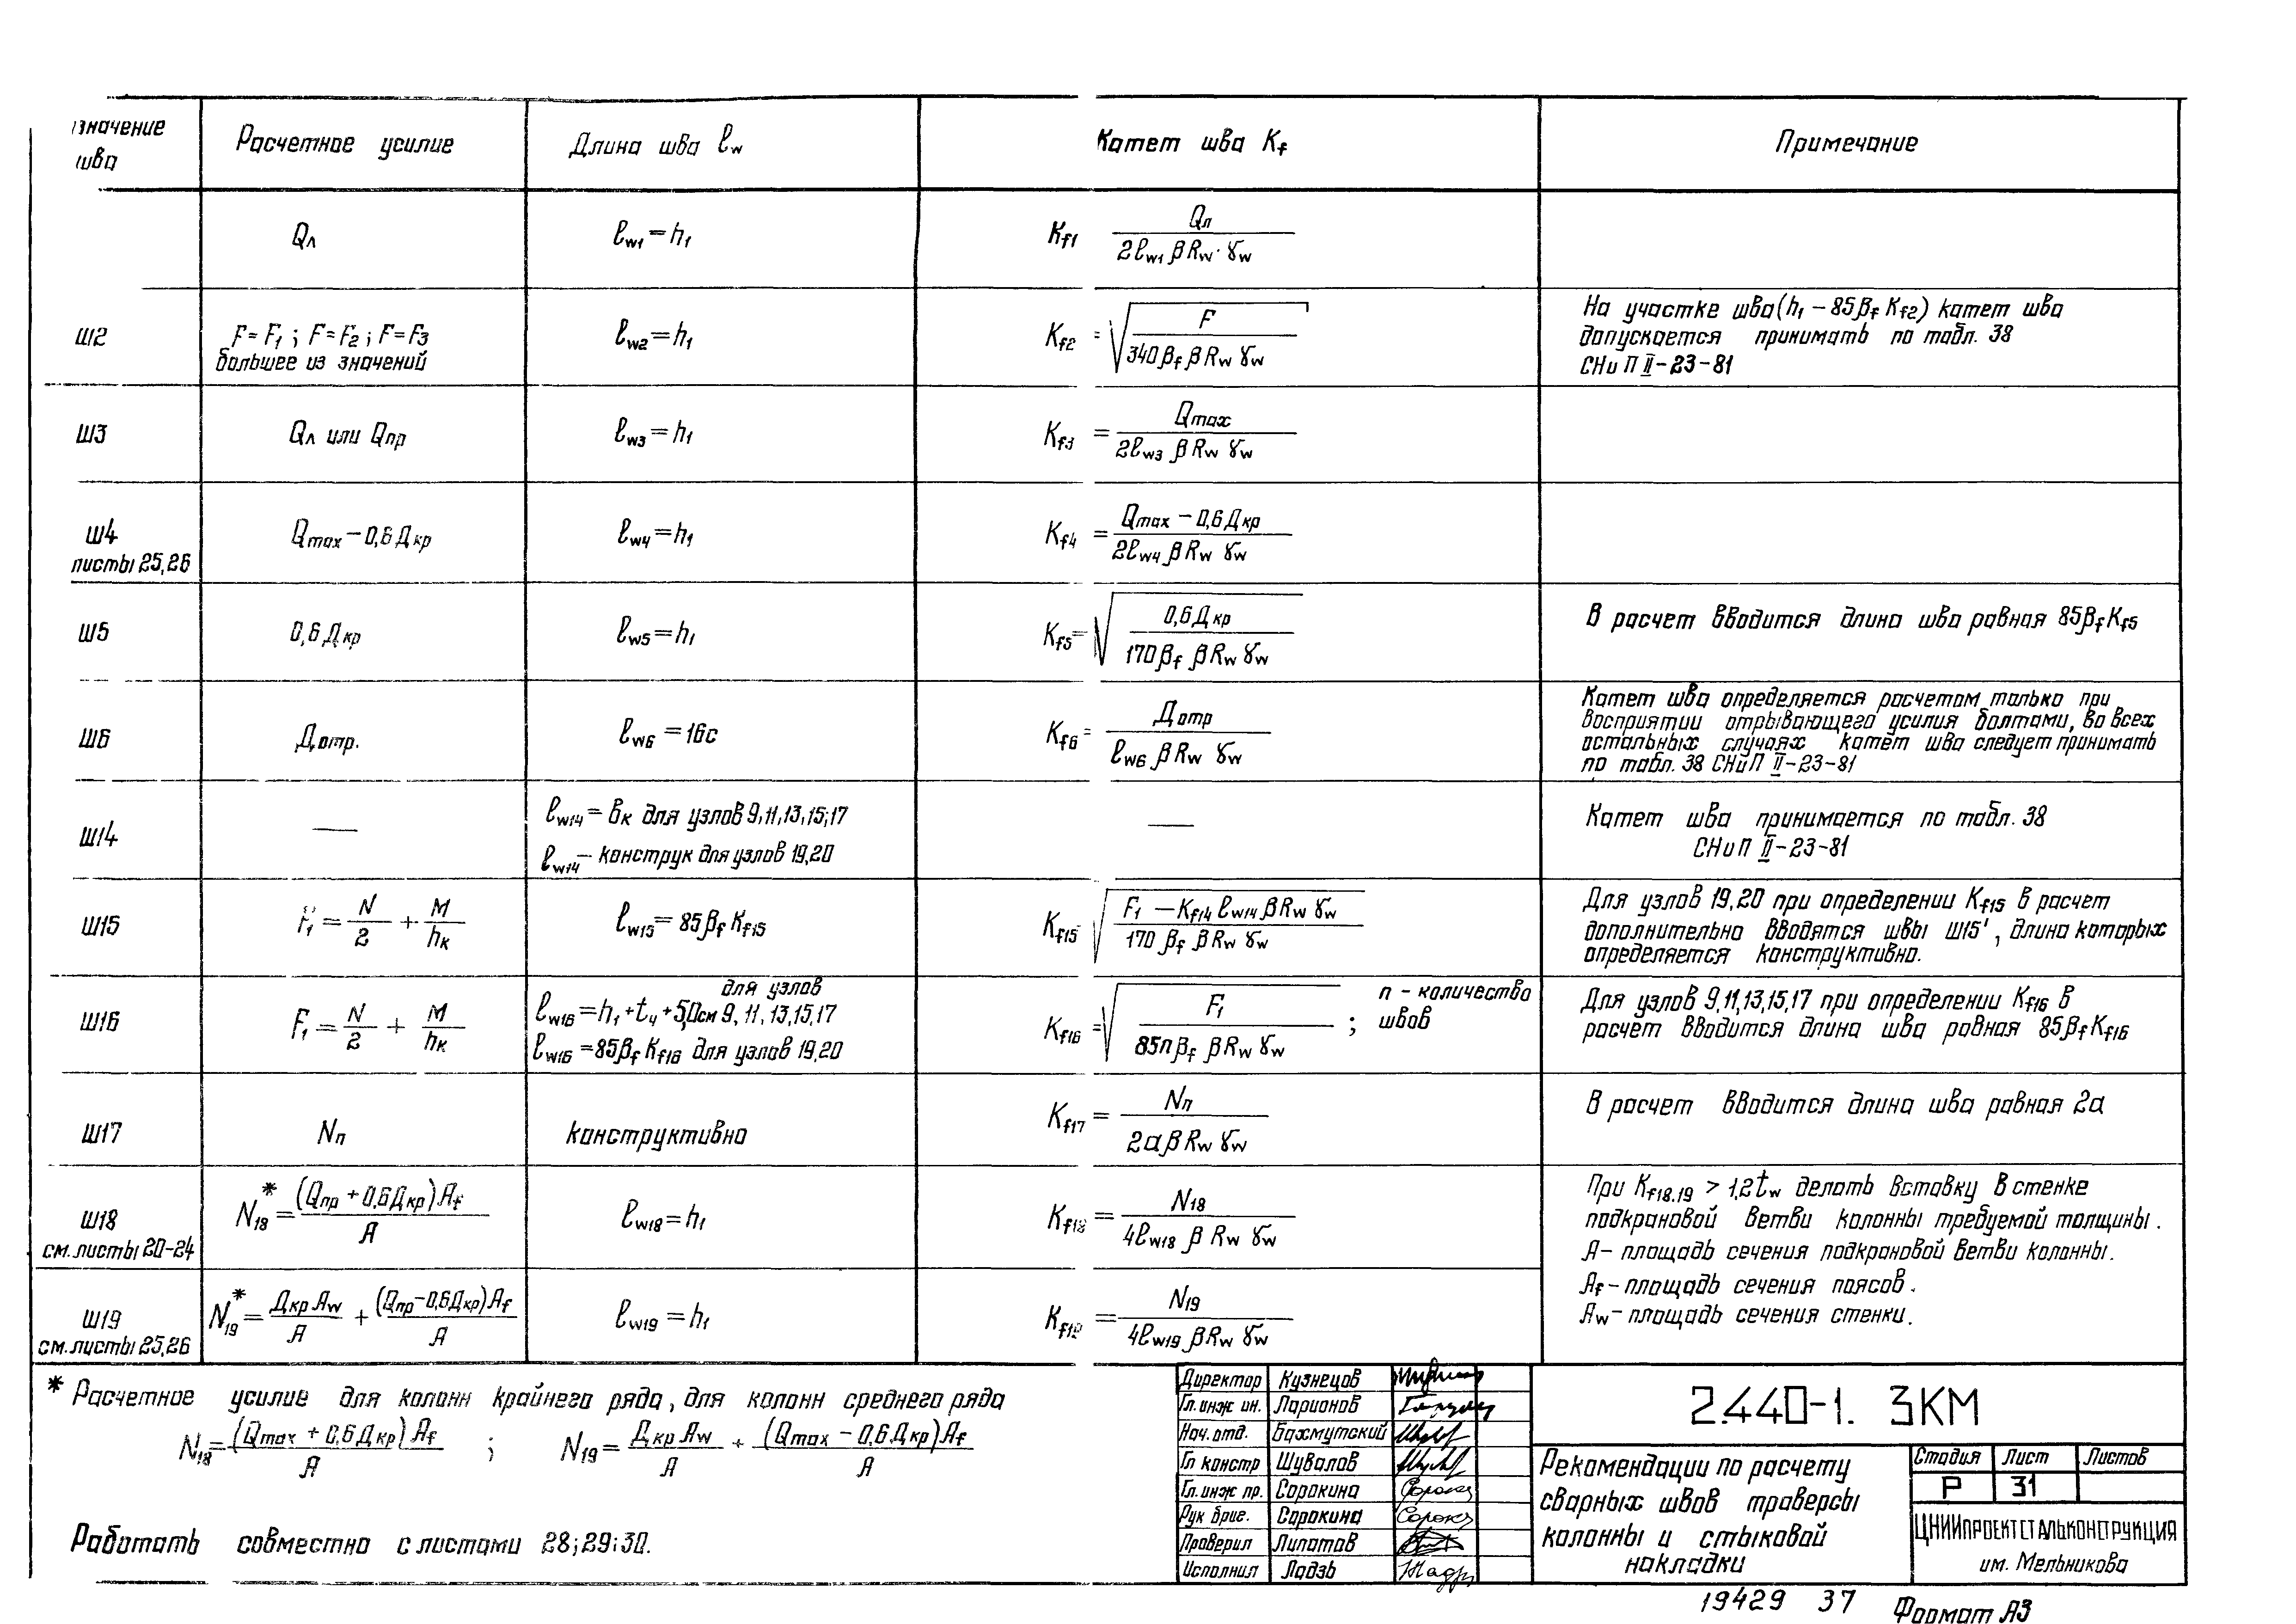 значение шва | Расчетное усилие | Длина шва ℓw | Катет шва Kf | Примечание
Qл | ℓw1=h1 | Kf1 Qл / 2ℓw1 βRw·γw
Ш2 | F=F1; F=F2; F=F3 большее из значений | ℓw2=h1 | Kf2 = √(F / 340βf βRw γw) | На участке шва (h1 – 85βf Kf2) катет шва
допускается принимать по табл. 38
СНиП II-23-81
Ш3 | Qл или Qпр | ℓw3=h1 | Kf3 = Qmax / 2ℓw3 βRw γw
Ш4 листы 25,26 | Qmax – 0,6Дкр | ℓw4=h1 | Kf4 = Qmax – 0,6Дкр / 2ℓw4 βRw γw
Ш5 | 0,6Дкр | ℓw5=h1 | Kf5 = √(0,6Дкр / 170βf βRw γw) | В расчет вводится длина шва равная 85βf Kf5
Ш6 | Дотр. | ℓw6=16с | Kf6 = Дотр / ℓw6 βRw γw | Катет шва определяется расчетом только при
восприятии отрывающего усилия болтами, во всех
остальных случаях катет шва следует принимать
по табл. 38 СНиП II-23-81
Ш14 | — | ℓw14 = вк для узлов 9,11,13,15;17 | — | Катет шва принимается по табл. 38
ℓw14 – конструк для узлов 19,20 | СНиП II-23-81
Ш15 | F1 = N/2 + M/hк | ℓw15 = 85βf Kf15 | Kf15 √(F1 – Kf14 ℓw14 βRw γw / 170 βf βRw γw) | Для узлов 19,20 при определении Kf15 в расчет
дополнительно вводятся швы Ш15', длина которых
определяется конструктивно.
Ш16 | F1 = N/2 + M/hк | ℓw16 = h1 + tч + 5,0см для узлов 9, 11, 13,15,17 | Kf16 = √(F1 / 85nβf βRw γw) ; n – количество швов | Для узлов 9,11,13,15,17 при определении Kf16 в
ℓw16 = 85βf Kf16 для узлов 19,20 | расчет вводится длина шва равная 85βf Kf16
Ш17 | Nп | конструктивно | Kf17 = Nп / 2aβRw γw | В расчет вводится длина шва равная 2a
Ш18 см. листы 20-24 | N18* = (Qпр + 0,6Дкр)Af / A | ℓw18=h1 | Kf18 = N18 / 4ℓw18 β Rw γw | При Kf18.19 > 1,2tw делать вставку в стенке
подкрановой ветви колонны требуемой толщины.
А – площадь сечения подкрановой ветви колонны.
Ш19 см. листы 25,26 | N19* = Дкр Aw / A + (Qпр – 0,6Дкр)Af / A | ℓw19=h1 | Kf19 = N19 / 4ℓw19 βRw γw | Af – площадь сечения поясов.
Aw – площадь сечения стенки.
* Расчетное усилие для колонн крайнего ряда, для колонн среднего ряда
N18 = (Qmax + 0,6Дкр)Af / A ; N19 = Дкр Aw / A + (Qmax – 0,6Дкр)Af / A
Работать совместно с листами 28;29;30.
Директор Кузнецов
Гл. инж ин. Ларионов
Нач. отд. Бахмутский
Гл констр Шувалов
Гл. инж пр. Сорокина
Рук бриг. Сорокина
Проверил Липатов
Исполнил Ладзь
2.440-1. 3КМ
Рекомендации по расчету
сварных швов траверсы
колонны и стыковой
накладки
Стадия Лист Листов
Р 31
ЦНИИПРОЕКТСТАЛЬКОНСТРУКЦИЯ
им. Мельникова
19429 37
Формат А3